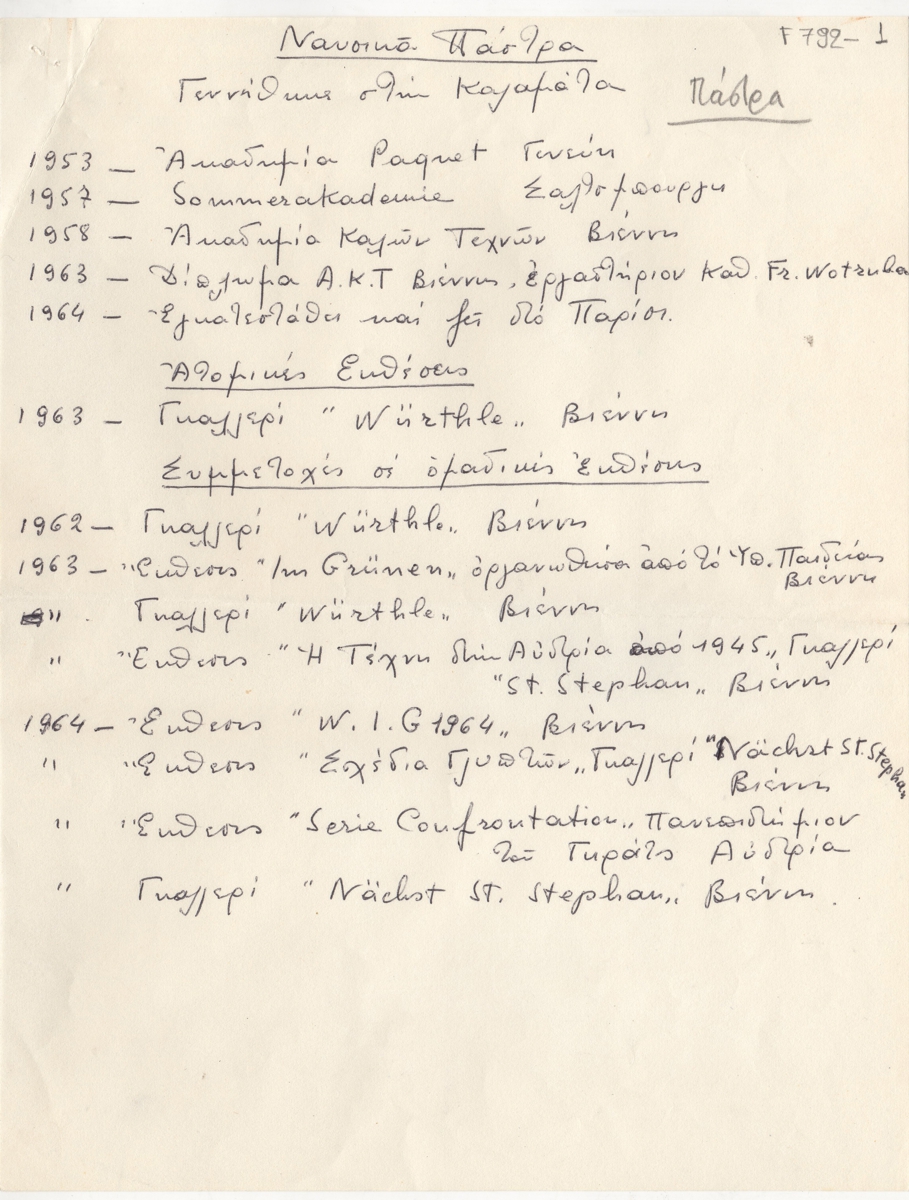 Ναυσικᾶ Πάστρα
F 792 - 1
Γεννήθηκε στήν Καλαμάτα
Πάστρα
1953 — Ἀκαδημία Paquet Γενεύη
1957 — Sommerakademie Σαλτσμπουργκ
1958 — Ἀκαδημία Καλῶν Τεχνῶν Βιέννης
1963 — Δίπλωμα Α.Κ.Τ Βιέννης, ἐργαστήριον Καθ. Fr. Wotruba
1964 — Ἐγκατεστάθει καί ζεῖ στό Παρίσι.
Ἀτομικές Εκθέσεις
1963 — Γκαλλερί "Würthle„ Βιέννης
Συμμετοχές σέ ὁμαδικές Ἐκθέσεις
1962 — Γκαλλερί "Würthle„ Βιέννης
1963 — Ἔκθεσις "Im Grünen„ ὀργανωθεῖσα ἀπό τό Ὑπ. Παιδείας
Βιέννης
" . Γκαλλερί "Würthle„ Βιέννης
" Ἔκθεσις "Ἡ Τέχνη στήν Αὐστρία ἀπό 1945„ Γκαλλερί
"St. Stephan„ Βιέννης
1964 — Ἔκθεσις "W. I. G 1964„ Βιέννης
" Ἔκθεσις "Σχέδια Γλυπτῶν„ Γκαλλερί "Nächst St. Stephan
Βιέννης
" Ἔκθεσις "Serie Confrontation„ Πανεπιστήμιον
τοῦ Γκράτς Αὐστρία
" Γκαλλερί "Nächst St. Stephan„ Βιέννης.